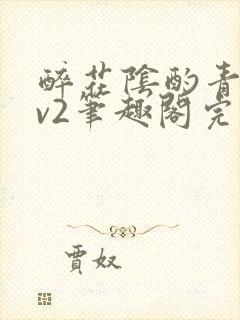 醉花陰酌青
v2筆趣閣完
賈奴